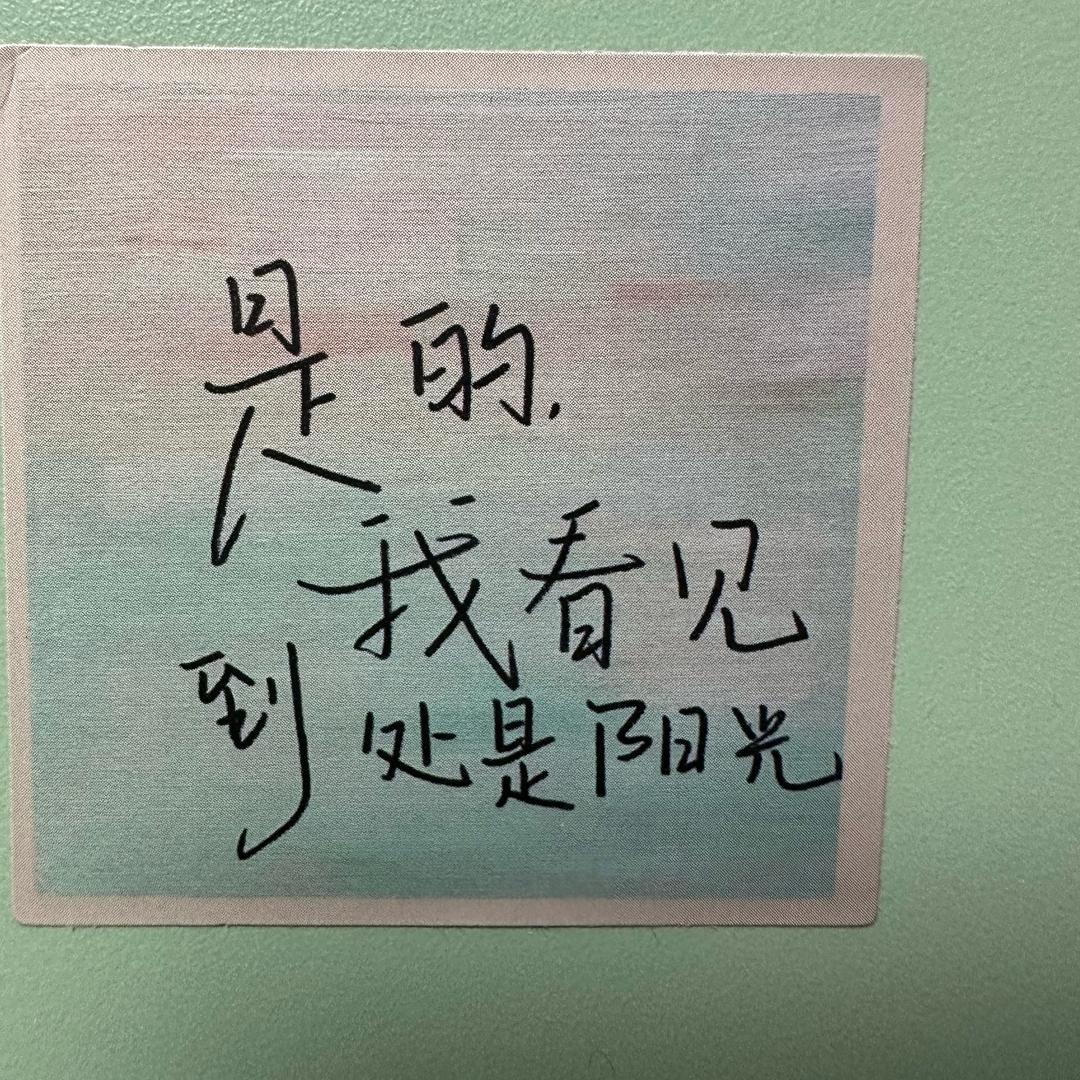 是的.
我看见
到处是阳光